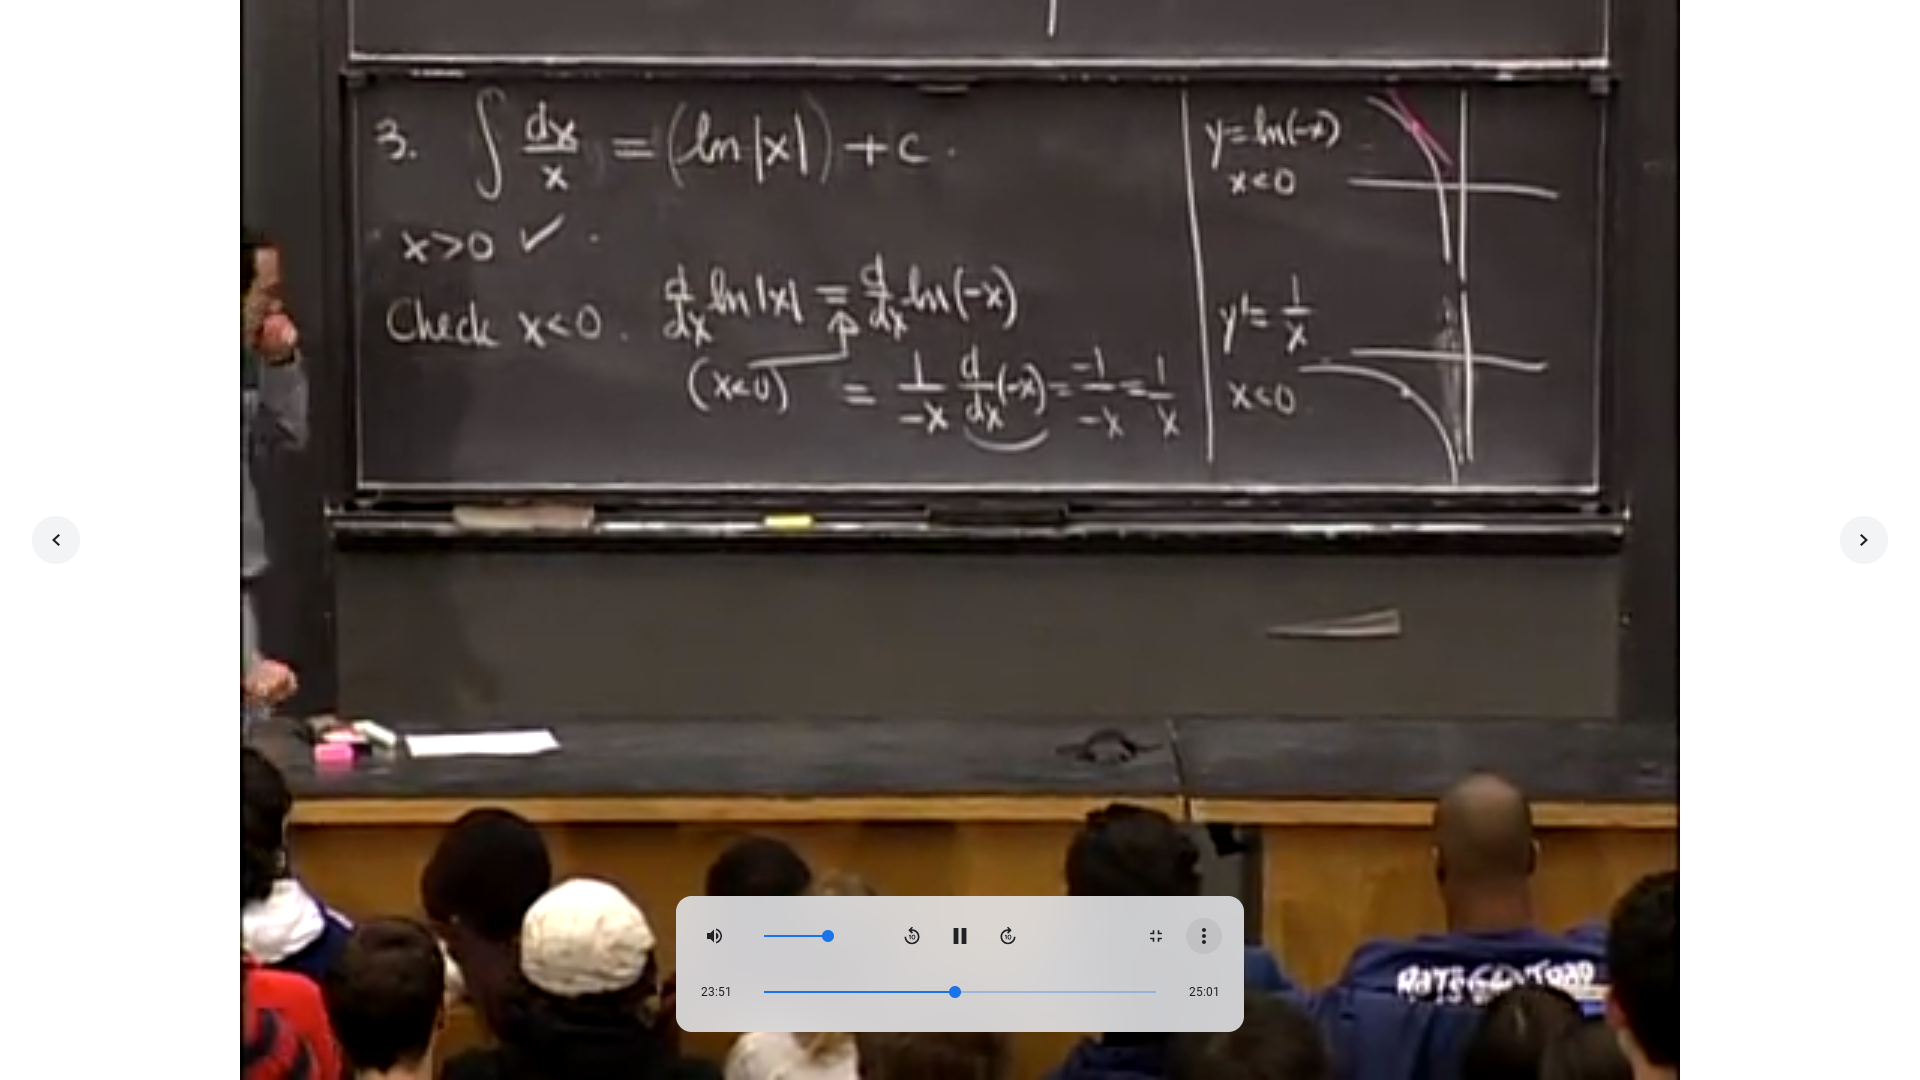 3. ∫ dx/x = (ln|x|) + c.
x>0 ✓.
Check x<0. d/dx ln|x| = d/dx ln(-x)
(x<0) = 1/-x d/dx(-x) = -1/-x = 1/x
y=ln(-x)
x<0
y'= 1/x
x<0
10 10
23:51 25:01